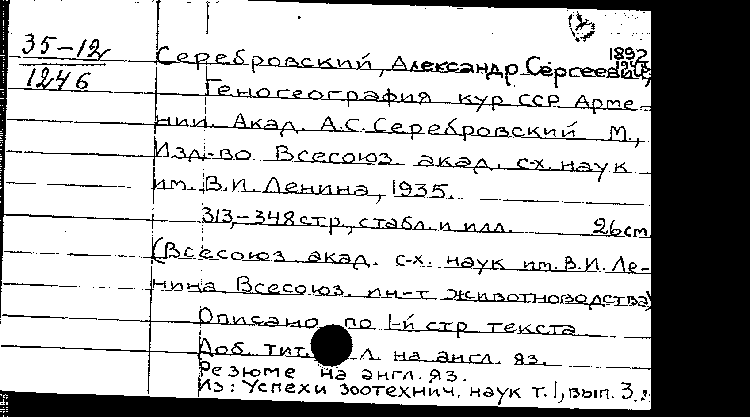 35-12
1246
1892
Серебровский, Александр Сергеевич,
Геногеография кур ССР Арме-
нии. Акад. А.С. Серебровский М.,
Изд-во Всесоюз. акад. с-х. наук
им. В.И. Ленина, 1935.
313,-348 стр., с табл. и илл. 26 см
(Всесоюз акад. с-х. наук им. В.И. Ле-
нина Всесоюз. ин-т животноводства)
Описано по 1-й стр текста
Доб. тит. л. на англ. яз.
Резюме на англ. яз.
Из: Успехи зоотехнич. наук т. 1, вып. 3.